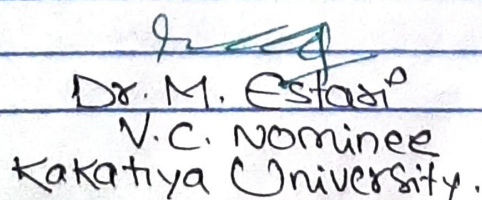 Dr. M. Estari
V.C. Nominee
Kakatiya University.